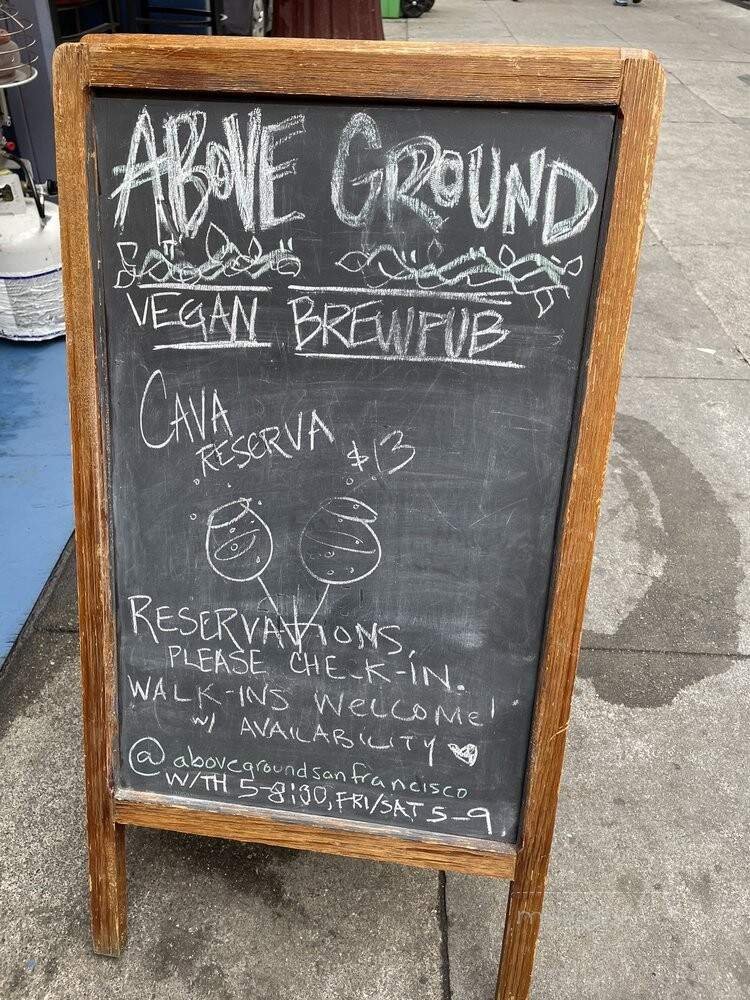 ABOVE GROUND
VEGAN BREWPUB
CAVA
RESERVA $13
RESERVATIONS,
PLEASE CHECK-IN.
WALK-INS WELCOME!
W/ AVAILABILITY
@abovegroundsanfrancisco
W/TH 5-8:30, FRI/SAT 5-9.